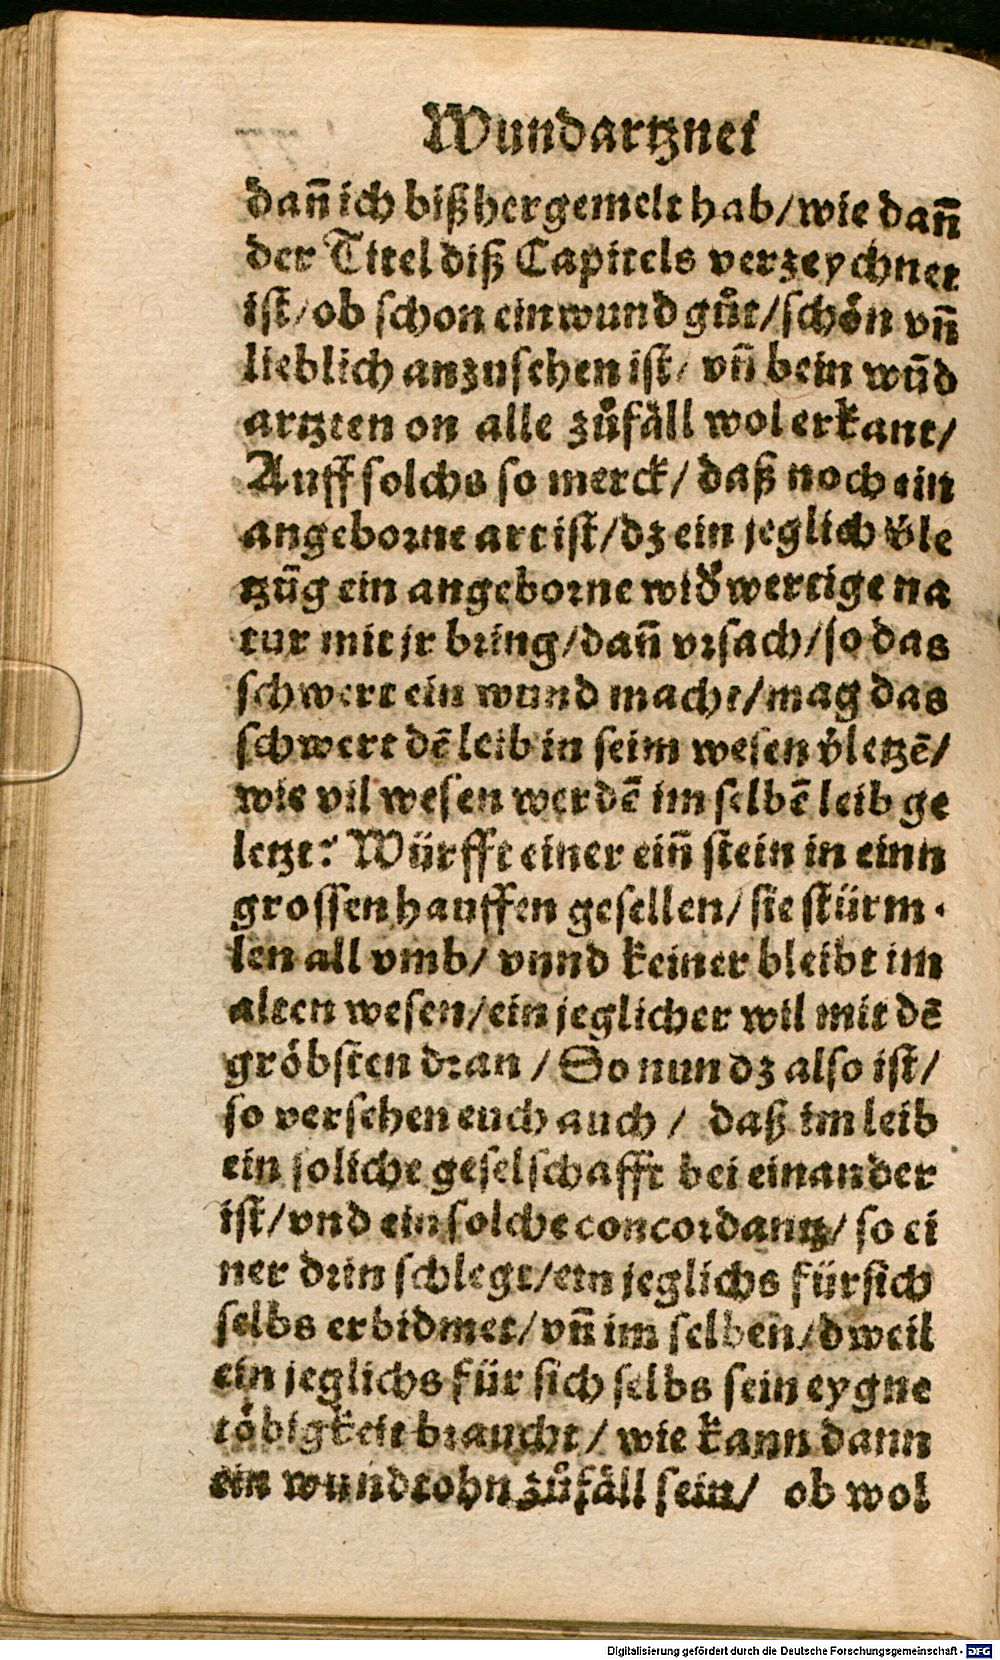 Wundartznei
dañ ich bißher gemelt hab/wie dañ
der Titel diß Capitels verzeychnet
ist/ob schon ein wund gůt/schön vñ
lieblich anzusehen ist/ vñ bein wūd
artzten on alle zůfäll wol erkant/
Auff solchs so merck/ daß noch ein
angeborne art ist/dz ein jeglich v̓le
tzūg ein angeborne wid̓wertige na
tur mit jr bring/dañ vrsach/so das
schwert ein wund macht/mag das
schwert dē leib in seim wesen v̓letzē/
wie vil wesen werdē im selbē leib ge
letzt? Würfft einer eiñ stein in einn
grossen hauffen gesellen/ sie stürm-
len all vmb/ vnnd keiner bleibt im
alten wesen/ein jeglicher wil mit dē
gröbsten dran / So nun dz also ist/
so versehen euch auch / daß im leib
ein soliche geselschafft bei einander
ist/vnd ein solche concordantz/ so ei
ner drin schlegt/ein jeglichs für sich
selbs erbidmet/vñ im selben/dweil
ein jeglichs für sich selbs sein eygne
töbigkeit braucht / wie kann dann
ein wundt ohn zůfäll sein/ ob wol
Digitalisierung gefördert durch die Deutsche Forschungsgemeinschaft - DFG